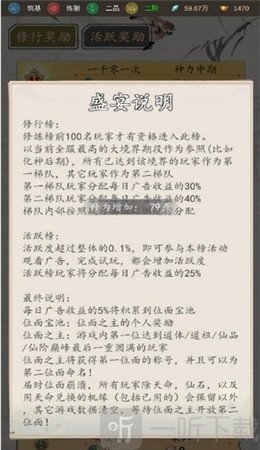 筑基 炼腑 二品 二阶 59.67万 1700
修行奖励 活跃奖励
一千零一次 神力中期
盛宴说明
修行榜:
修炼榜前100名玩家才有资格进入此榜。
以当前全服最高的大境界期段作为参照(比如
化神后期),所有已达到该境界的玩家作为第
一梯队,其它玩家作为第二梯队
第一梯队玩家分配每日广告收益的30%
第二梯队玩家分配每日广告收益的40%
梯队内部按照
增加: 79点
活跃榜:
活跃度超过整体的0.1%,即可参与本榜活动
观看广告,完成试玩,都会增加活跃度
活跃榜玩家将分配每日广告收益的25%
最终说明:
每日广告收益的5%将积累到位面宝池
位面宝池:位面之主的个人奖励
位面之主:游戏内第一位达到道体/道祖/仙品
/仙阶巅峰最后一重圆满的玩家
位面之主将获得第一位面的称号,并且可以为
第二位面命名!
届时位面崩溃,所有玩家除天命,仙石,以及
用天命兑换的机缘(包括已用的)会保留以外
,其它游戏数据清空,等待位面之主开放第二
位面!
一听下载